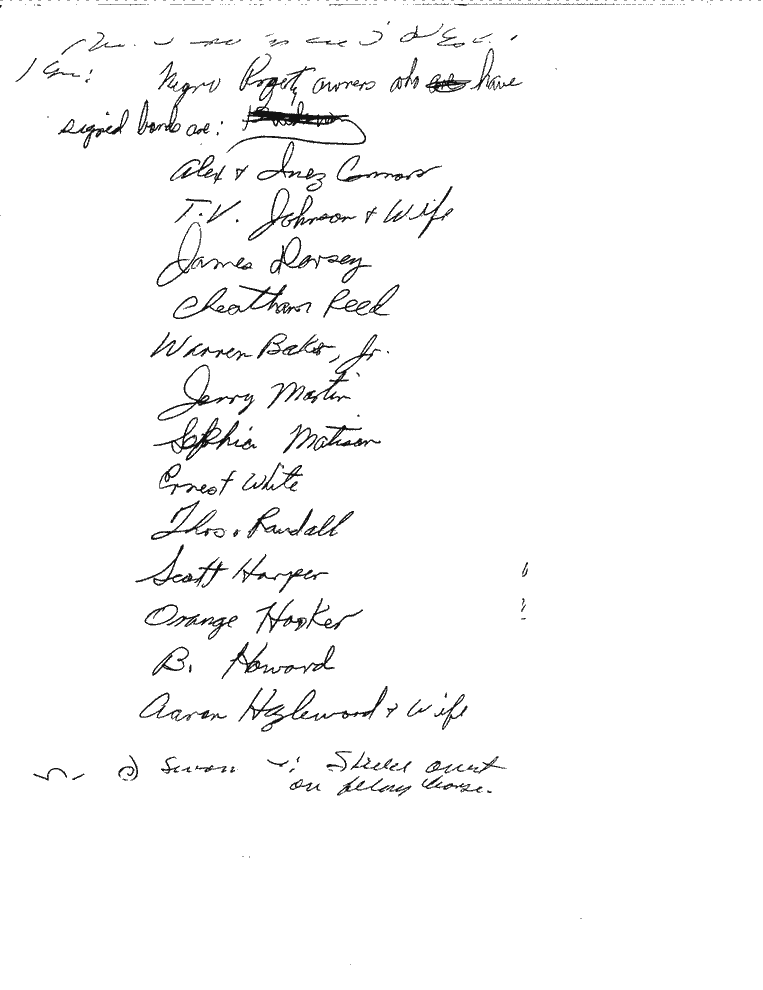 Negro Property owners who have
signed bonds are:
Alex & Inez Connors
T.V. Johnson & Wife
James Dorsey
Cheatham Reed
Warren Baker, Jr.
Jerry Martin
Sophia Matison
Ernest White
Thos. Randall
Scott Harper
Orange Hooker
B. Howard
Aaron Hazlewood & Wife
on felony